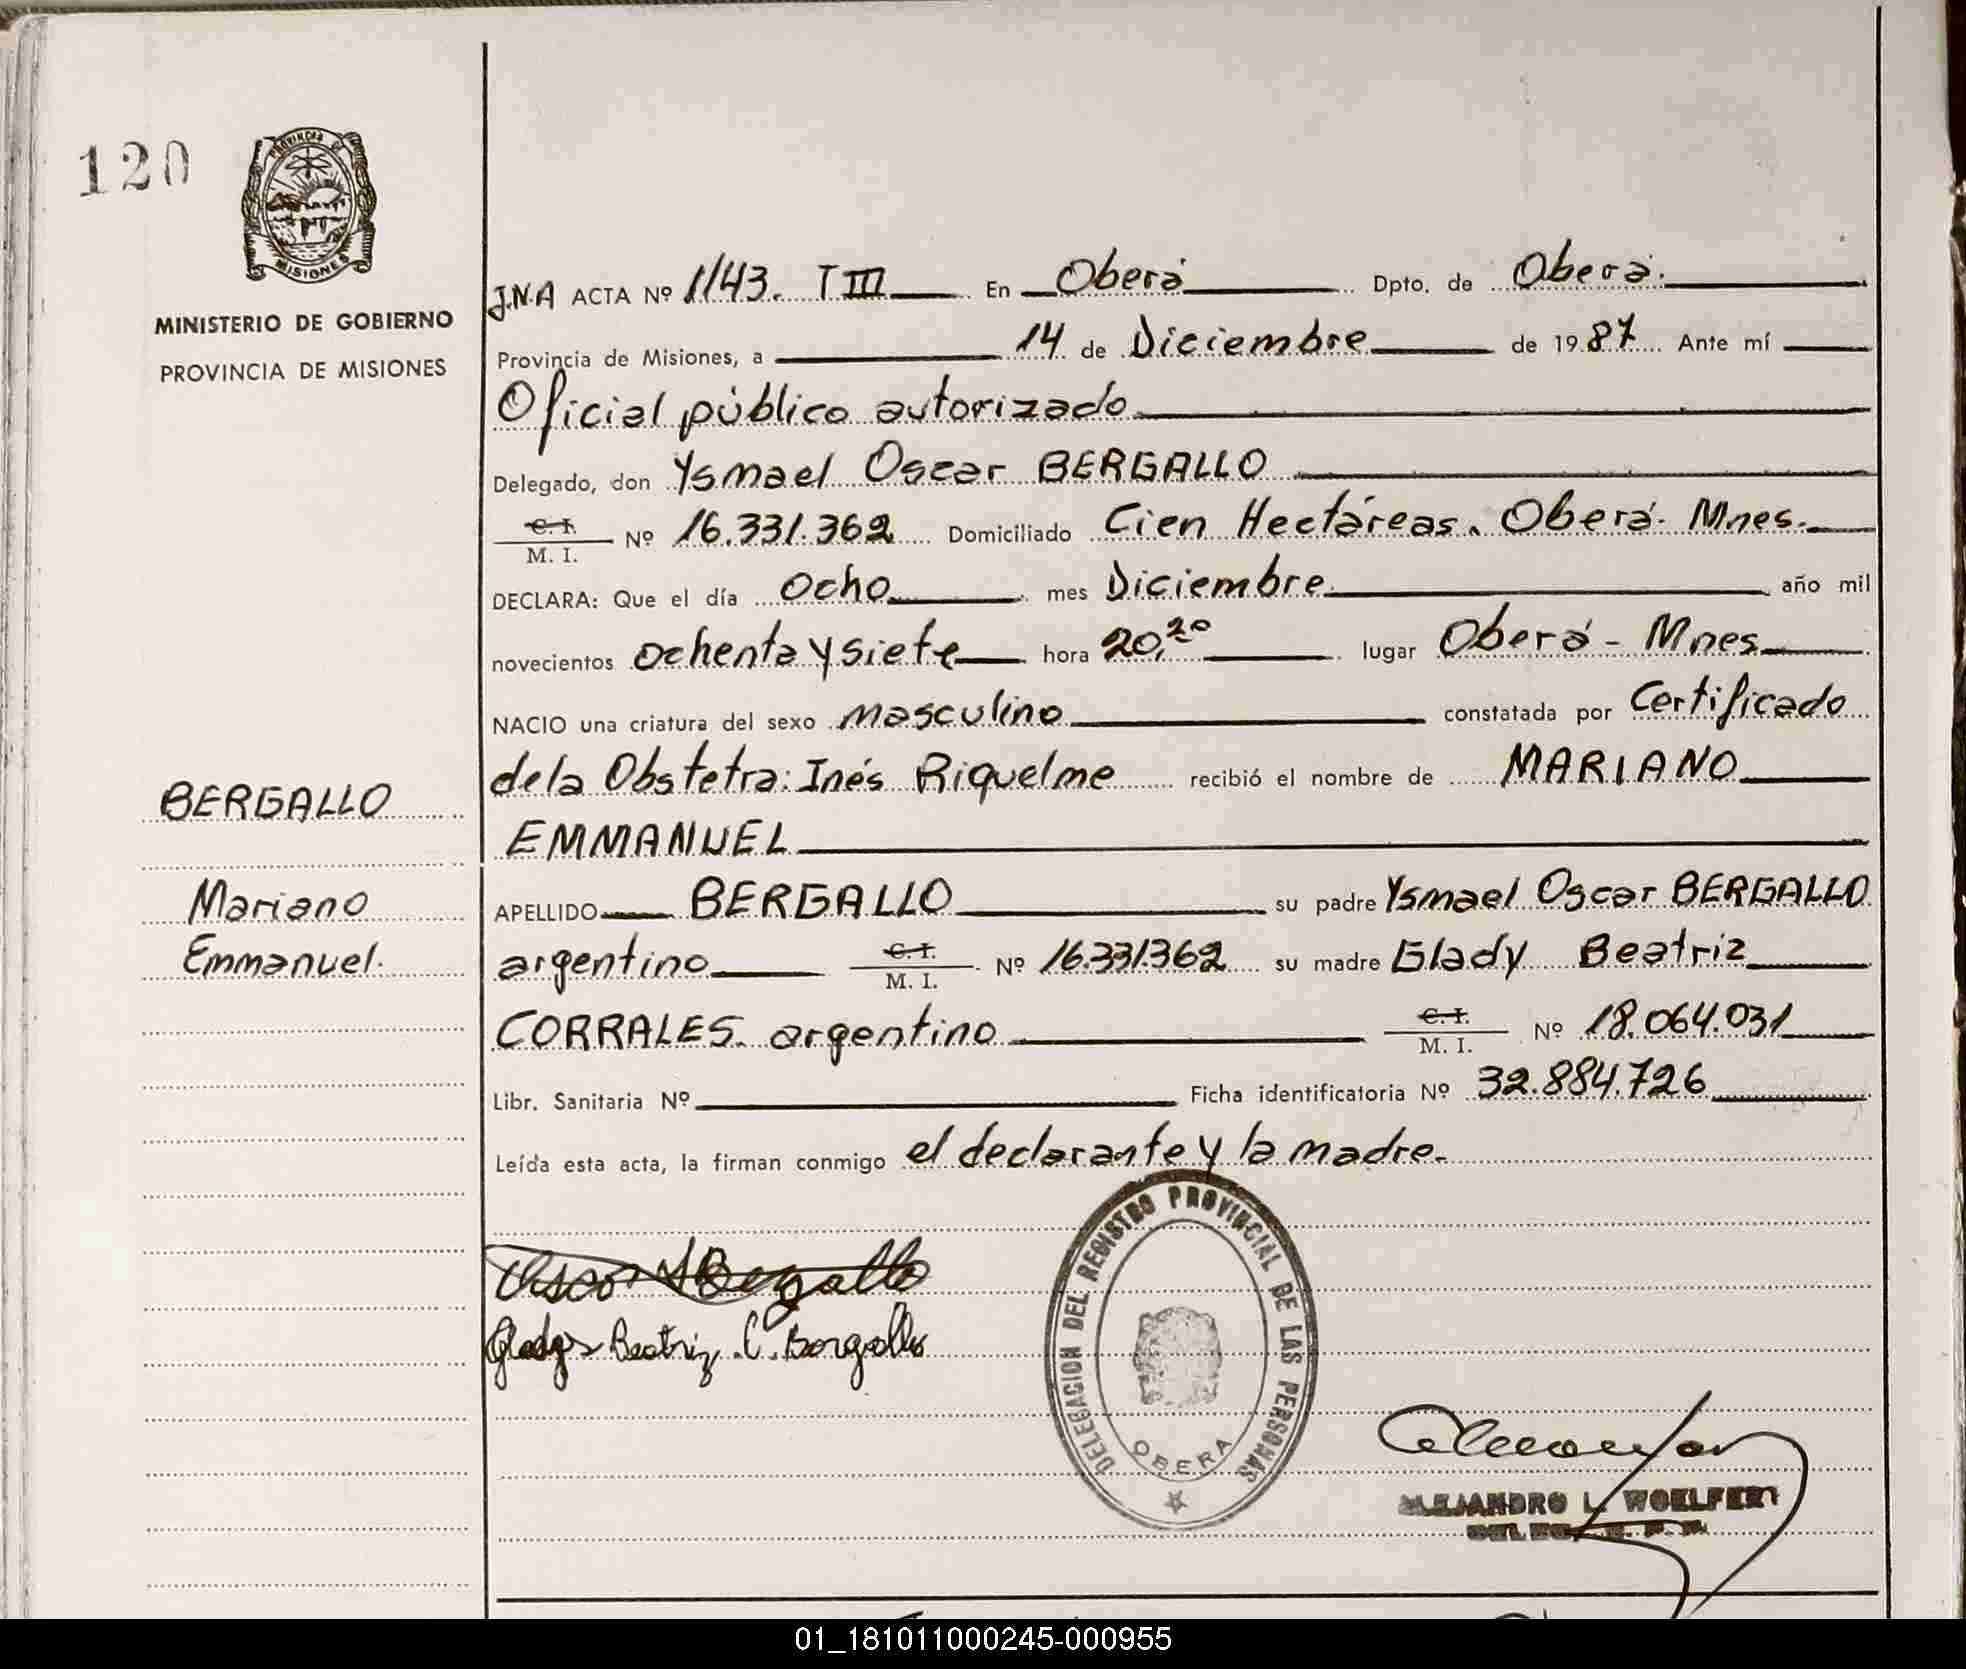 120
PROVINCIA DE
MISIONES
MINISTERIO DE GOBIERNO
PROVINCIA DE MISIONES
BERGALLO
Mariano
Emmanuel.
J.N.A ACTA Nº 1143. T III En Oberá Dpto. de Oberá.
Provincia de Misiones, a 14 de Diciembre de 1987 Ante mí
Oficial público autorizado
Delegado, don Ysmael Oscar BERGALLO
C. I.
M. I. Nº 16.331.362 Domiciliado Cien Hectáreas. Oberá. Mnes.
DECLARA: Que el día ocho mes Diciembre año mil
novecientos ochenta y siete hora 20,20 lugar Oberá - Mnes
NACIO una criatura del sexo masculino constatada por Certificado
de la Obstetra: Inés Riquelme recibió el nombre de MARIANO
EMMANUEL
APELLIDO BERGALLO su padre Ysmael Oscar BERGALLO
argentino C. I. M. I. Nº 16.331362 su madre Glady Beatriz
CORRALES. argentino C. I. M. I. Nº 18.064.031
Libr. Sanitaria Nº Ficha identificatoria Nº 32.884.726
Leída esta acta, la firman conmigo el declarante y la madre.
Oscar Bergallo
Gladys Beatriz C. Bergallo
DELEGACION DEL REGISTRO PROVINCIAL DE LAS PERSONAS
OBERA
ALEJANDRO L. WOELFERT
01_181011000245-000955